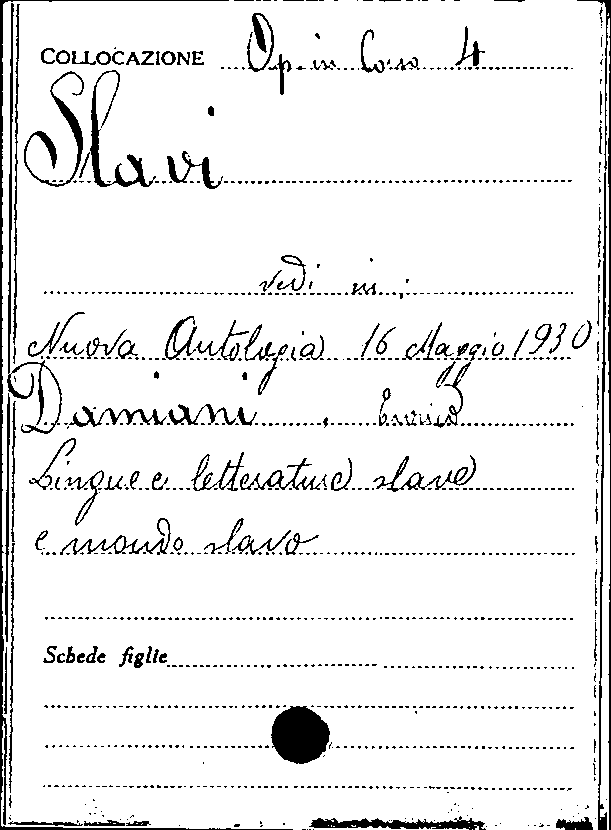 COLLOCAZIONE Op. in Corso 4
Slavi
vedi in;
Nuova Antologia 16 Maggio 1930
Damiani, Enrico
Lingue e letterature slave
e mondo slavo
Schede figlie